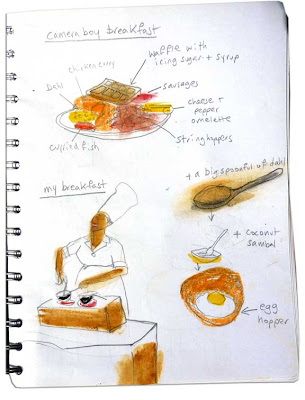 camera boy breakfast
waffle with
icing sugar + syrup
chicken curry
sausages
Dahl
cheese +
pepper
omelette
stringhoppers
curried fish
my breakfast
+ a big spoonful of dahl
+ coconut
sambal
egg
hopper